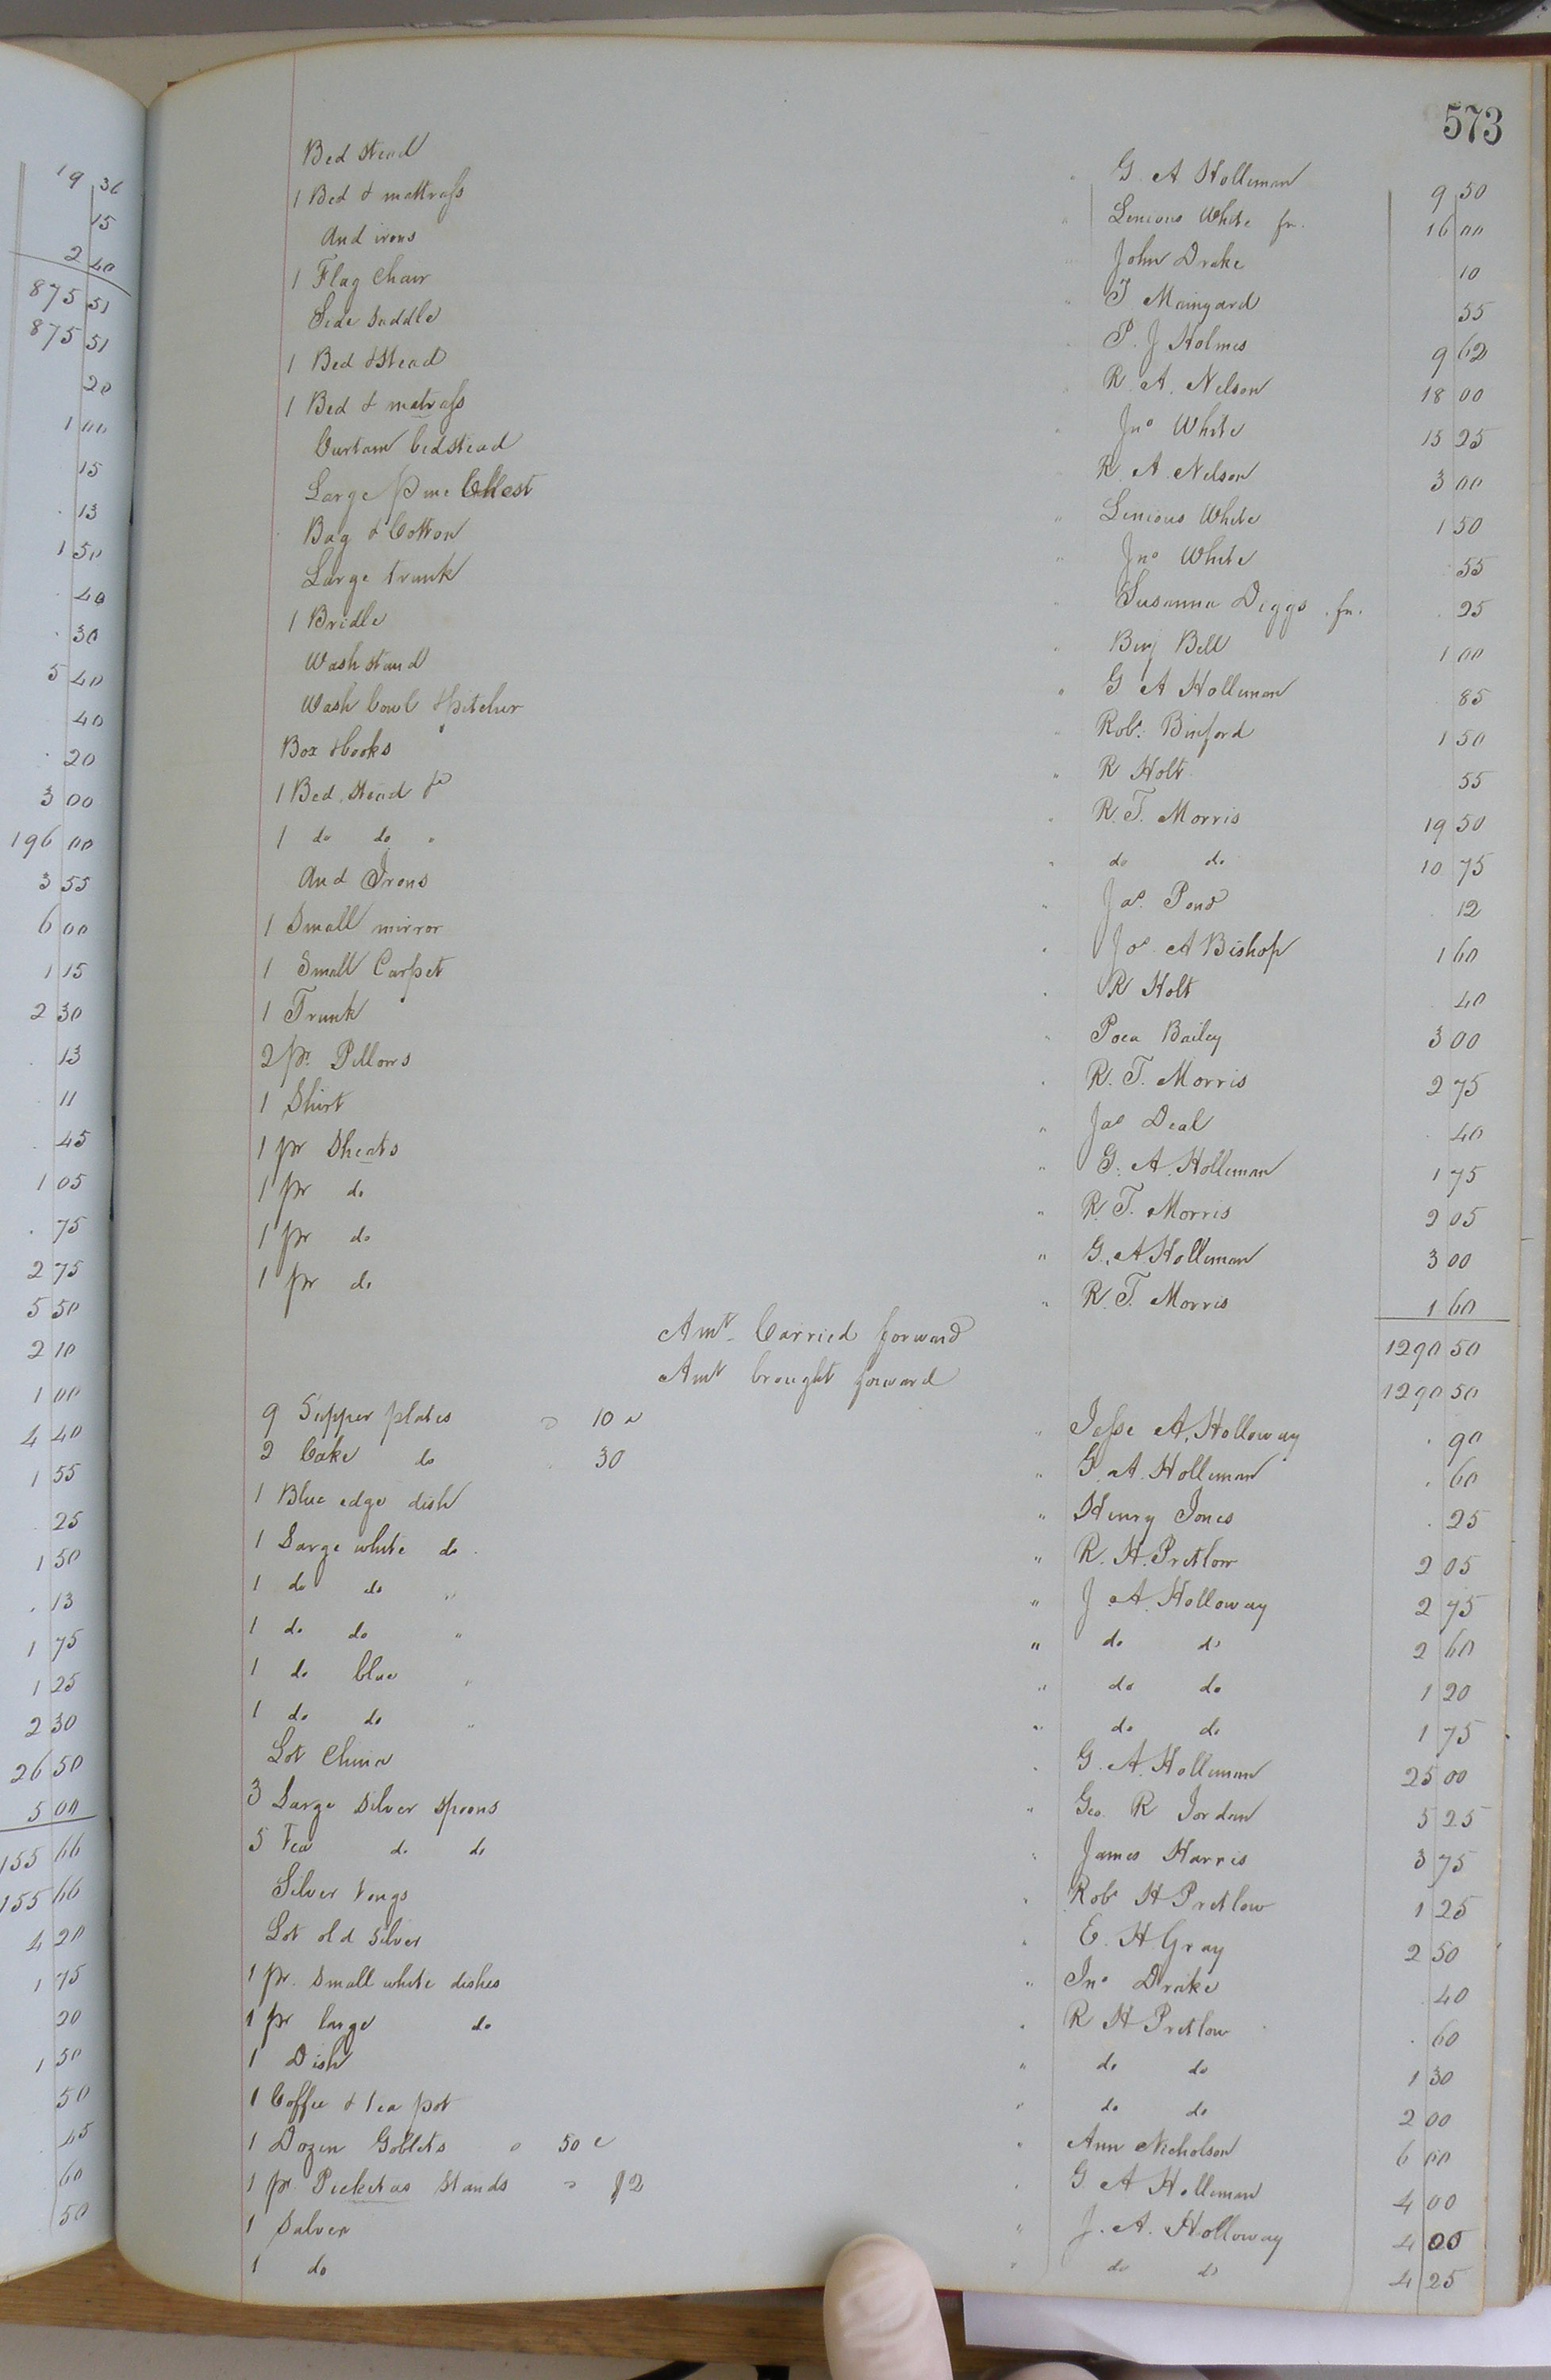 573
Bed stead " G. A Holleman 9 50
1 Bed & mattrass " Lenious White fn. 16 00
And irons " John Drake 10
1 Flag Chair " T Maingard 55
Side Saddle " P. J Holmes 9 62
1 Bed & Stead " R. A. Nelson 18 00
1 Bed & matrass " Jno White 15 25
Curtain bedstead R. A. Nelson 3 00
Large pine Chest " Lenious White 1 50
Bag & Cotton " Jno White 55
Large trunk " Susanna Deggs . fn. 25
1 Bridle " Benj Bell 1 00
Wash stand " G A Holleman 85
Wash bowl & pitcher " Robt. Binford 1 50
Box & books " R Holt 55
1 Bed. Stead &c " R. T. Morris 19 50
1 do do " " do do 10 75
And Irons " Jas. Pond 12
1 Small mirror " Jos A Bishop 1 60
1 Small Carpet " R Holt 40
1 Trunk " Poca Bailey 3 00
2 pr. Pillows " R. T. Morris 2 75
1 Shirt " Jas Deal 40
1 pr Sheats " G. A. Holleman 1 75
1 pr do " R. T. Morris 2 05
1 pr do " G. A Holleman 3 00
1 pr do " R. T. Morris 1 60
Amt. Carried forward 1290 50
Amt brought forward 1290 50
9 Supper plates 10 c " Jesse A. Holloway . 90
2 Cake do 30 " G. A. Holleman . 60
1 Blue edge dish " Henry Jones . 25
1 Large white do. " R. H. Pretlow 2 05
1 do do " " J. A. Holloway 2 75
1 do do " " do do 2 60
1 do blue " " do do 1 20
1 do do " " do do 1 75
Lot China " G. A. Holleman 25 00
3 Large Silver Spoons " Geo. R Jordan 5 25
5 Tea do do " James Harris 3 75
Silver tongs " Robt H Pretlow 1 25
Lot old Silver " E. H. Gray 2 50
1 pr. Small white dishes " Jno Drake 40
1 pr large do " R H Pretlow . 60
1 Dish " do do 1 30
1 Coffee & tea pot " do do 2 00
1 Dozen Goblets 50 c " Ann Nicholson 6 00
1 pr. Picketus Stands $2 " G A Holleman 4 00
1 Salver " J. A. Holloway 4 00
1 do " do do 4 25
19 36
15
2 40
875 51
875 51
20
1 00
15
. 13
1 50
. 40
. 30
5 40
40
. 20
3 00
196 00
3 55
6 00
1 15
2 30
. 13
. 11
. 45
1 05
. 75
2 75
5 50
2 10
1 00
4 40
1 55
25
1 50
. 13
1 75
1 25
2 30
26 50
5 00
155 66
155 66
4 20
1 75
20
1 50
50
45
60
50